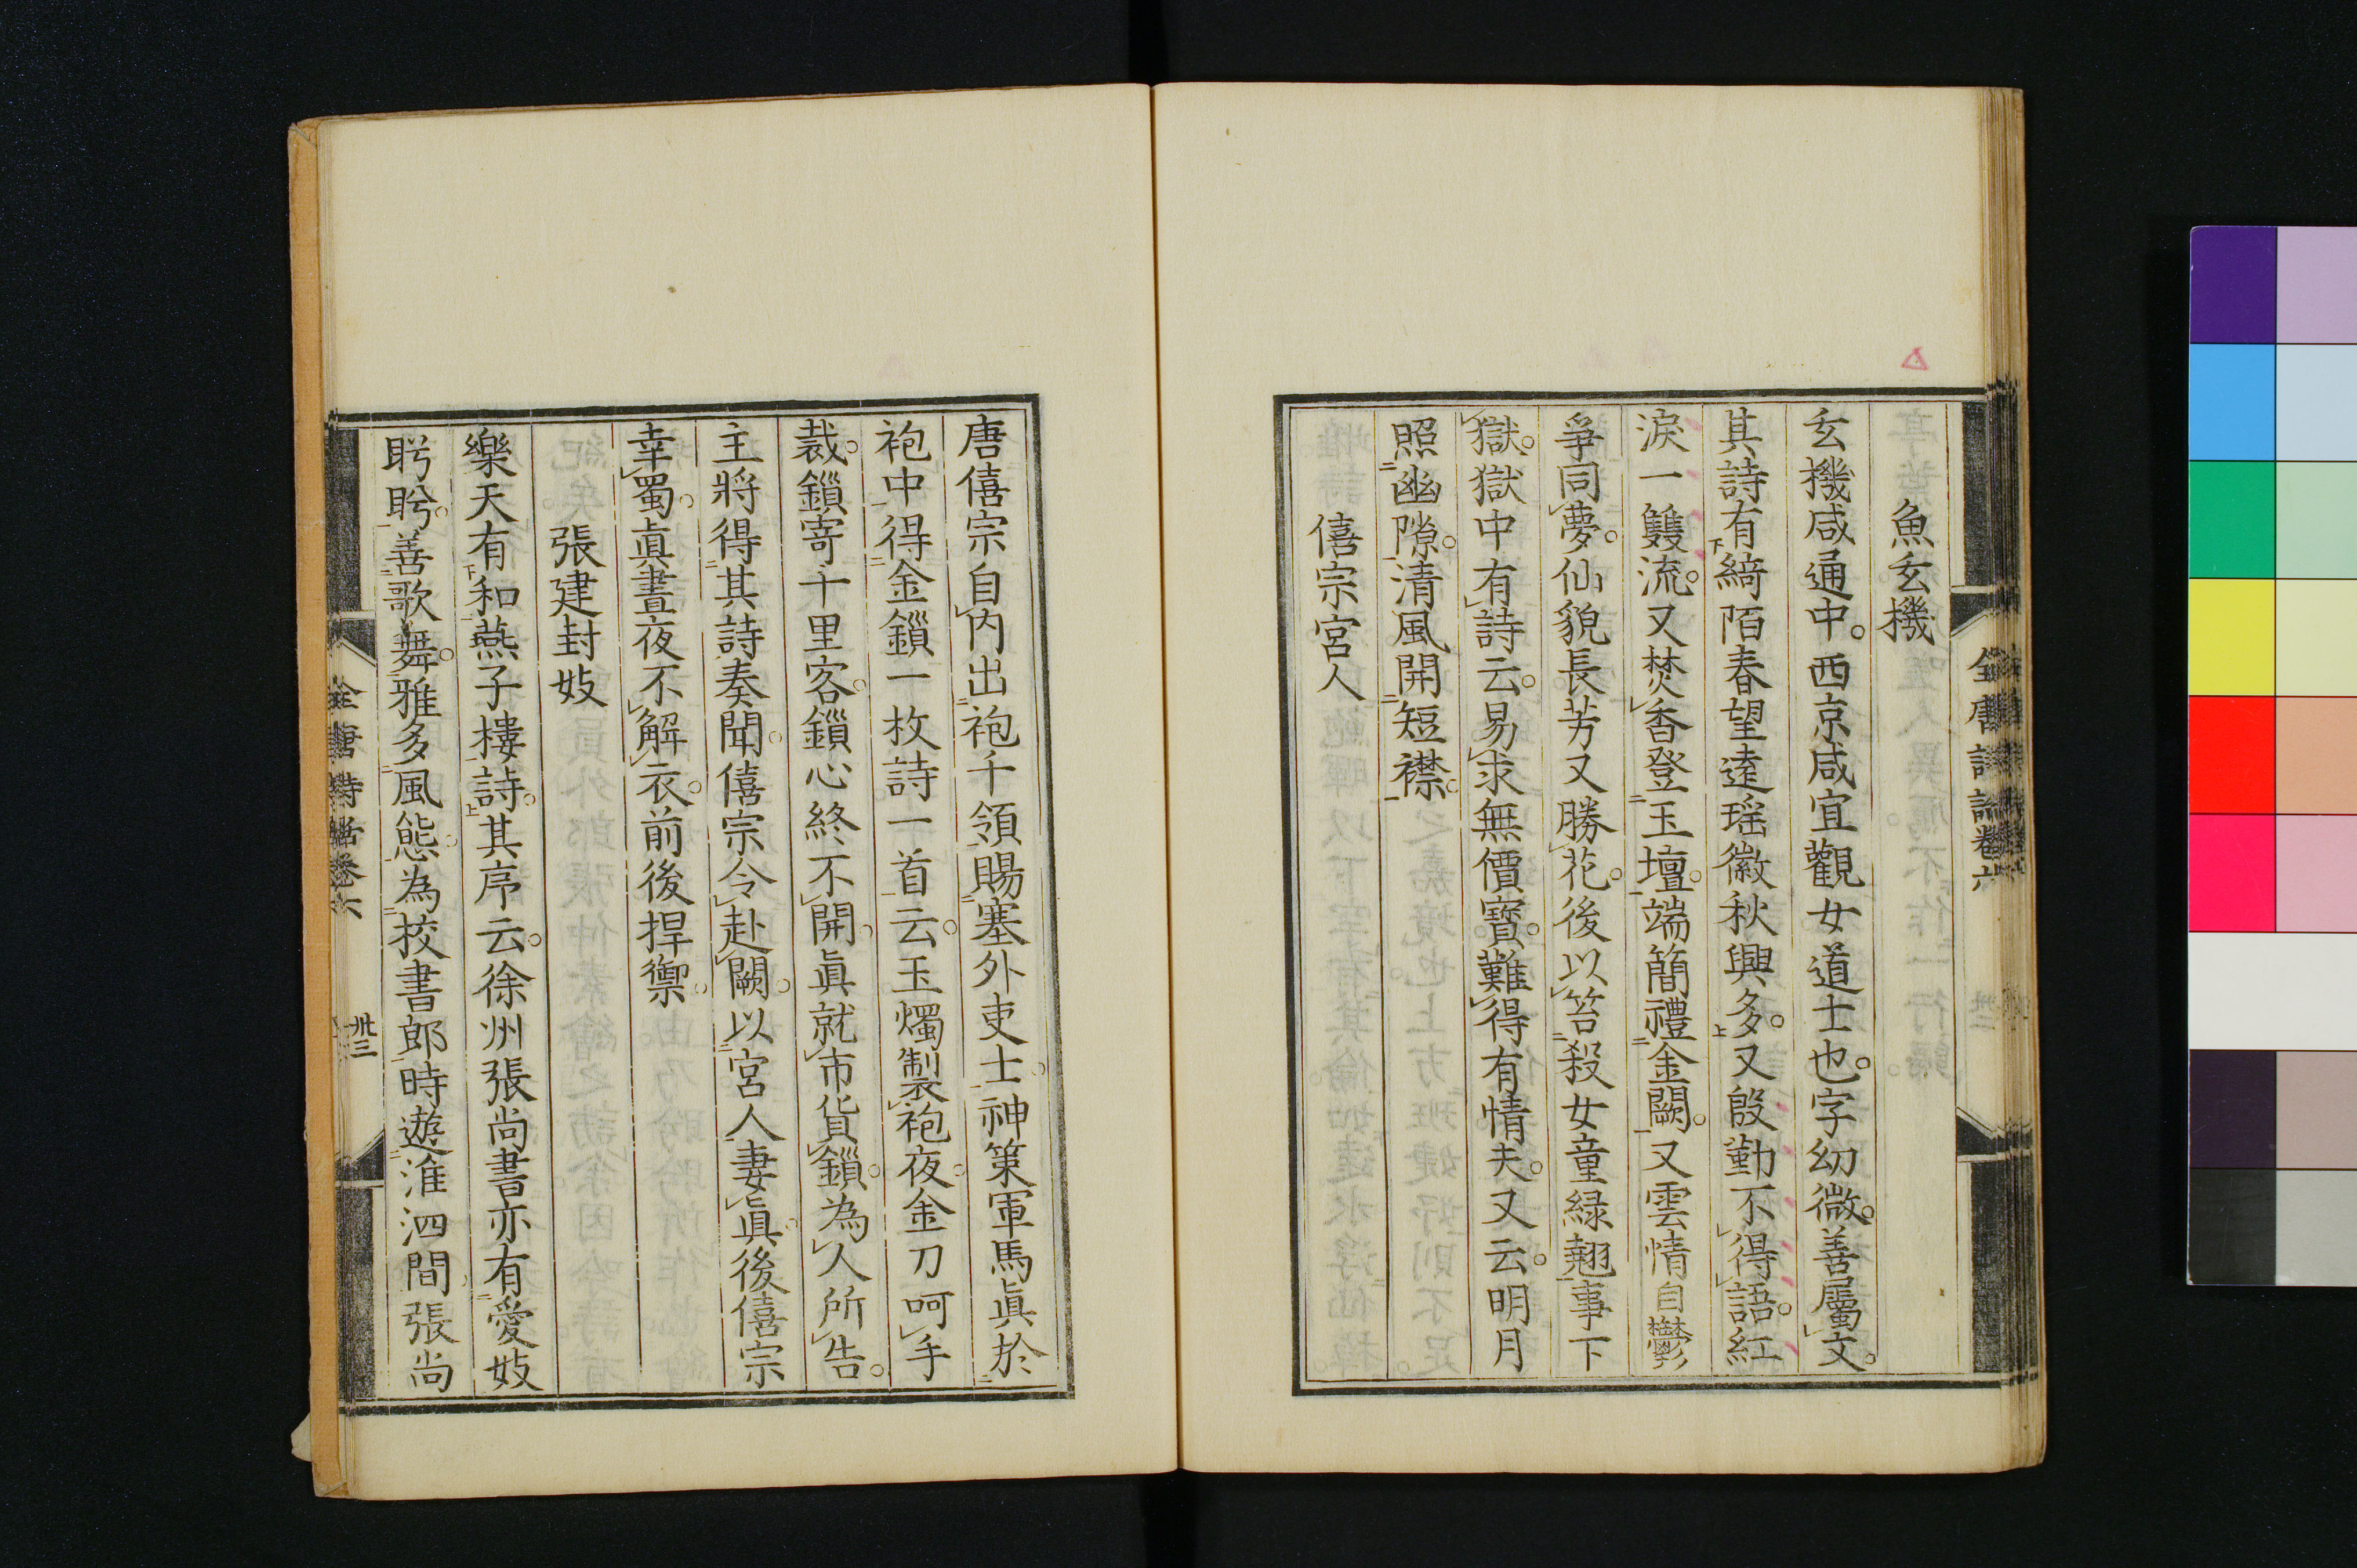 魚玄機
玄機咸通中。西京咸宜觀女道士也。字幼微。善屬文。
其詩有綺陌春望遠瑶徽秋興多。又殷勤不得語。紅
淚一雙流。又焚香登玉壇。端簡禮金闕。又雲情自鬱
爭同夢。仙貌長芳又勝花。後以笞殺女童緑翹事下
獄。獄中有詩云。易求無價寶。難得有情夫。又云。明月
照幽隙。清風開短襟。
僖宗宮人
全唐詩話卷六
唐僖宗自内出袍千領賜塞外吏士。神策軍馬眞於
袍中得金鎻一枚詩一首云。玉燭製袍夜。金刀呵手
裁。鎻寄千里客。鎻心終不開。眞就市貨鎻。為人所告。
主將得其詩奏聞。僖宗令赴闕。以宮人妻眞。後僖宗
幸蜀。眞晝夜不解衣。前後捍禦。
張建封妓
樂天有和燕子樓詩。其序云。徐州張尚書亦有愛妓
盻盻。善歌舞。雅多風態。為校書郎時遊淮泗間。張尚
全唐詩話卷六
卅三